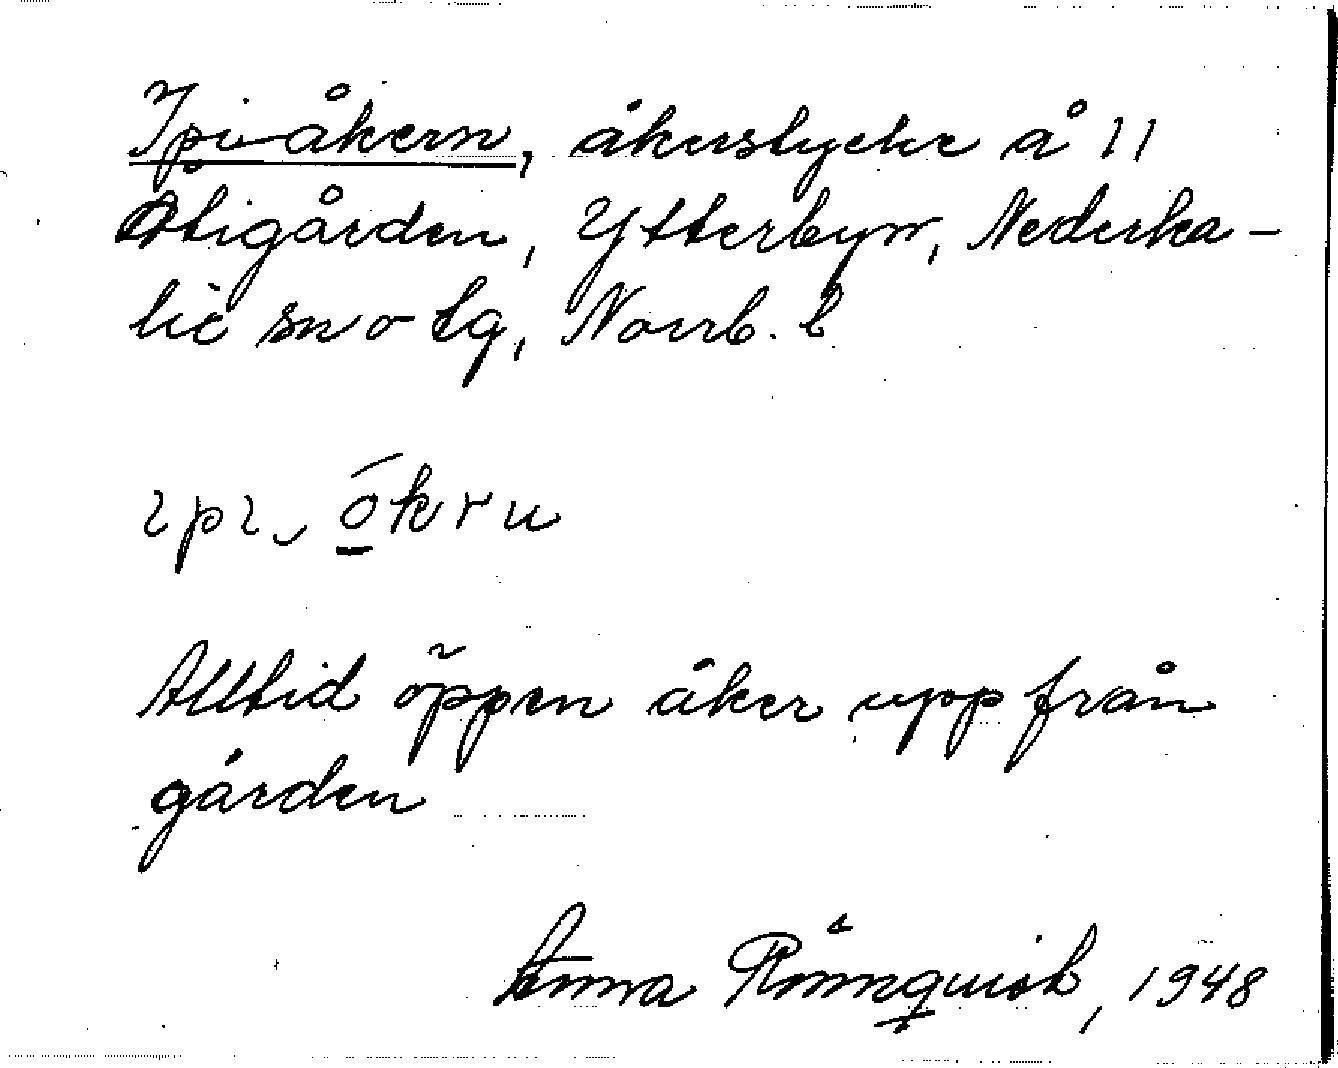 Ipi-åkern, åkerstycke å 11
Stigården, Ytterbyn, Nederka-
lix sn o tg, Norrb. l
ɩpɩ ókru
Alltid öppen åker upp från
gården
Anna Rönnquist, 1948